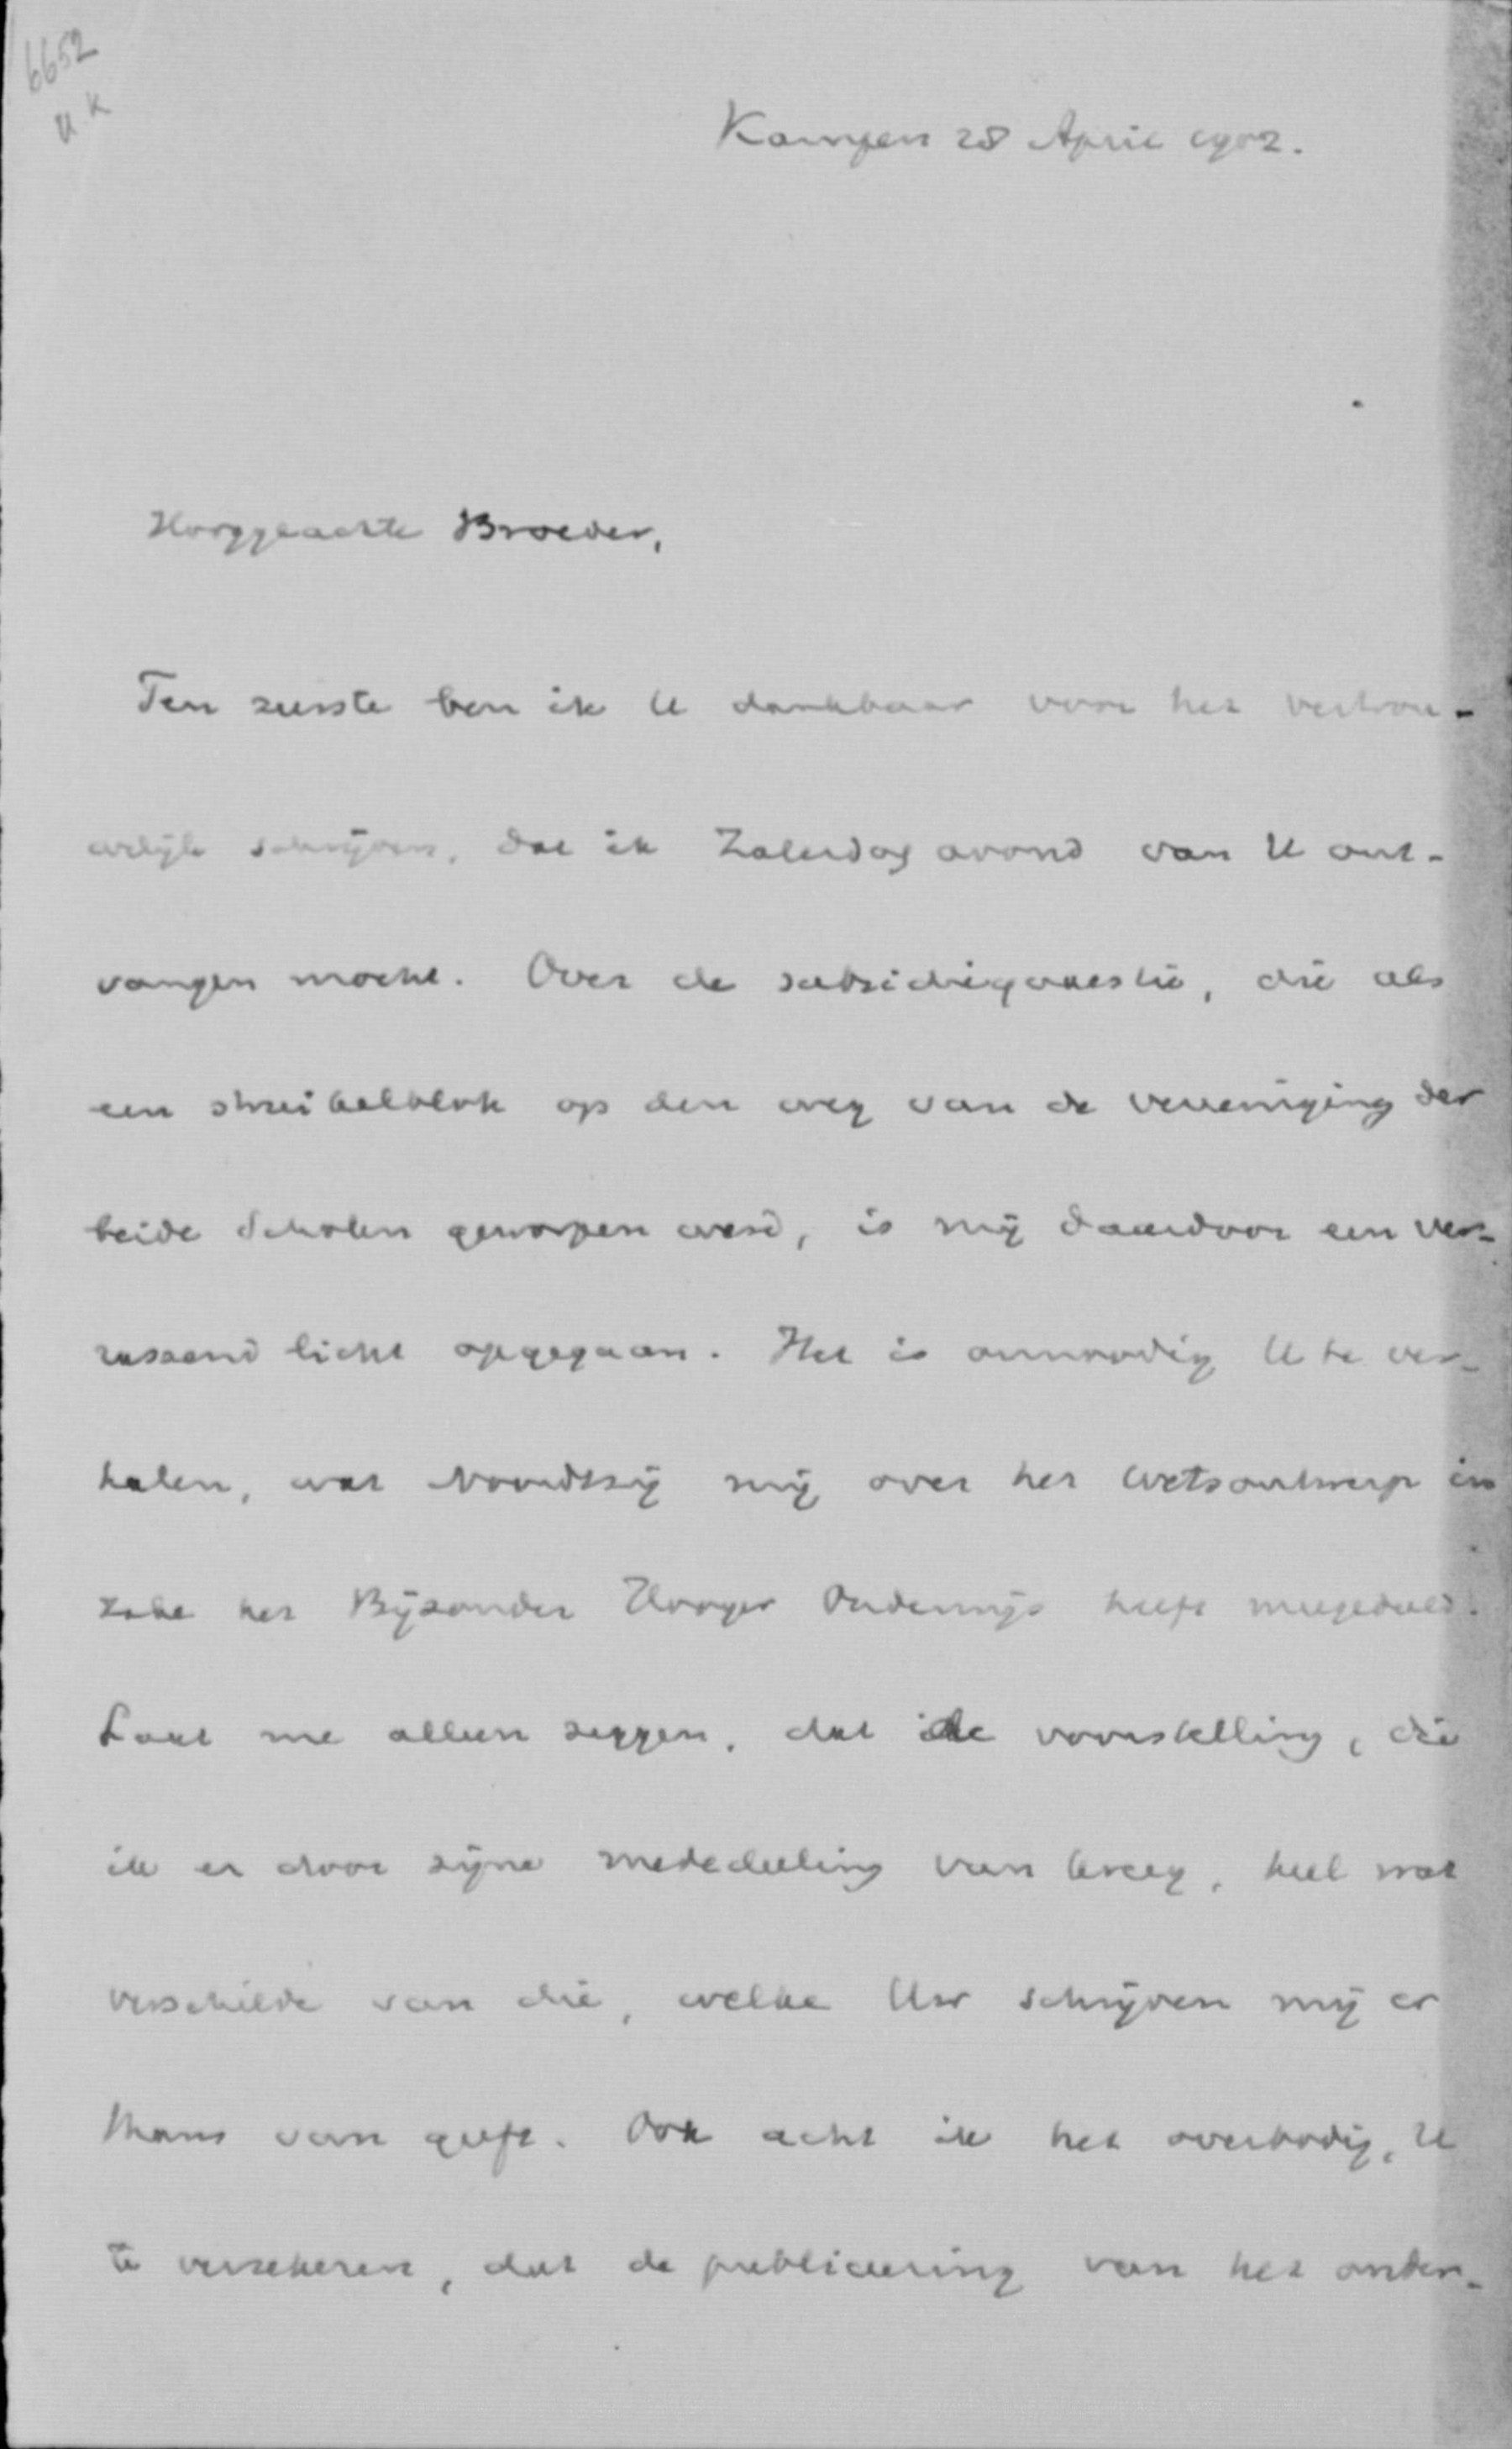 6652
UK
Kampen 28 April 1902.
Hooggeachte Broeder,
Ten zeerste ben ik U dankbaar voor het vertrou-
welijk schrijven, dat ik Zaterdag avond van U ont-
vangen mocht. Over de subsidiequaestie, die als
een struikelblok op den weg van de vereeniging der
beide Scholen geworpen werd, is mij daardoor een ver-
rassend licht opgegaan. Het is onnoodig U te ver-
halen, wat Noordtzij mij over het Wetsontwerp in
zake het Bijzonder Hooger Onderwijs heeft meegedeeld.
Laat me alleen zeggen, dat de voorstelling, die
ik er door zijne mededeeling van kreeg, heel wat
verschilde van die, welke Uw schrijven mij er
thans van geeft. Ook acht ik het overbodig, U
te verzekeren, dat de publiceering van het onder-